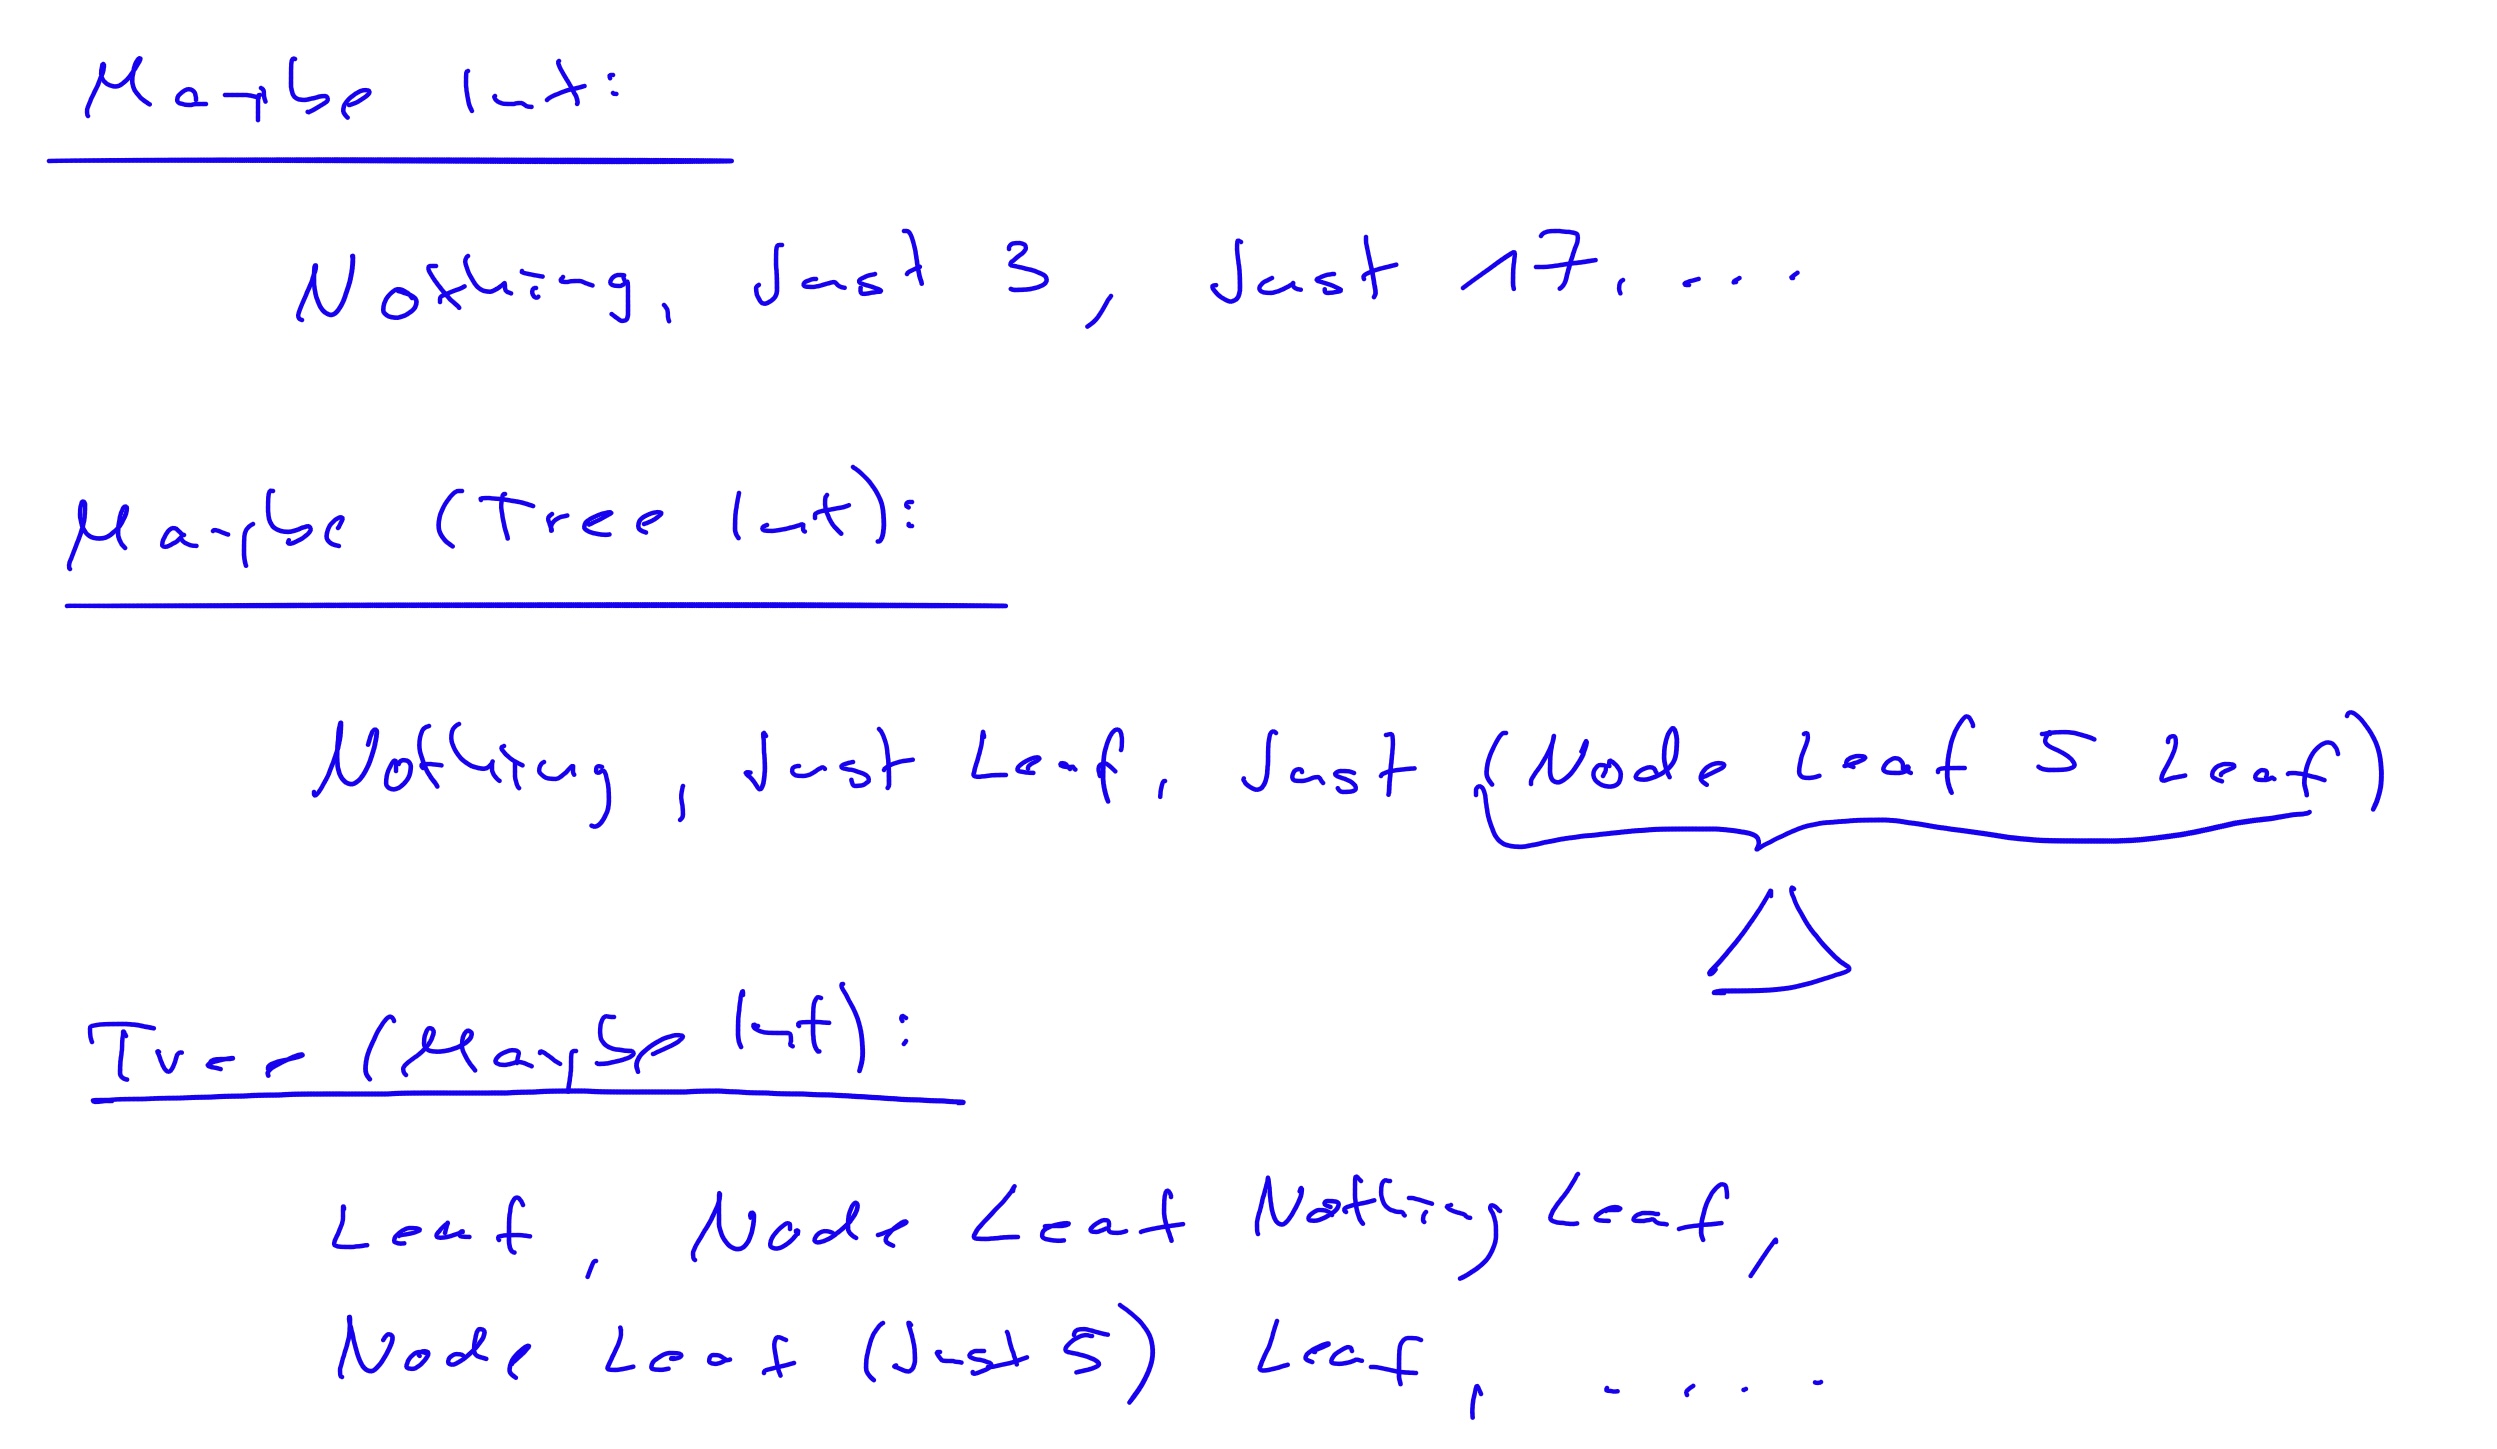 Maybe Int:
Nothing, Just 3, Just 17, ...
Maybe (Tree Int):
Nothing, Just Leaf, Just (Node Leaf 5 Leaf)
Tree (Maybe Int):
Leaf, Node Leaf Nothing Leaf,
Node Leaf (Just 5) Leaf, ....